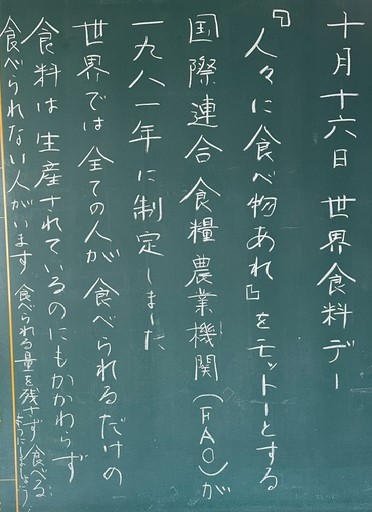 十月十六日 世界食料デー
『人々に食べ物あれ』をモットーとする
国際連合食糧農業機関（FAO）が
一九八一年に制定しました
世界では全ての人が食べられるだけの
食料は生産されているのにもかかわらず
食べられない人がいます 食べられる量を残さず食べる
ようにしましょう！